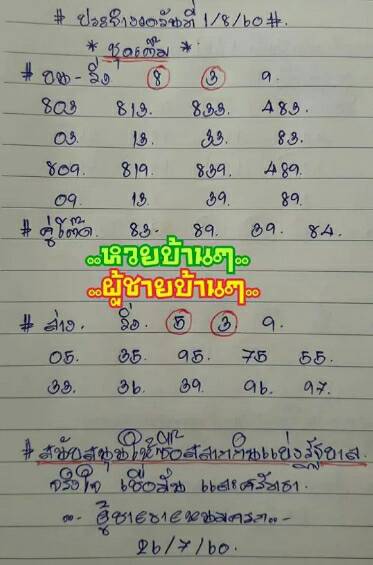 # ประจำงวดวันที่ 1/8/60 #.
* ชุดเต็ม *
# บน - วิ่ง 8 3 9.
803 813. 833. 483.
03. 13. 33. 83.
809. 819. 839. 489.
09. 13. 39. 89.
# คู่โต๊ด. 83. 89. 39. 84.
..หวยบ้านๆ..
..ผู้ชายบ้านๆ..
# ล่าง. วิ่ง. 5 3 9.
05. 35. 95. 75 55.
33. 36. 39. 96. 97.
# สนับสนุนให้ซื้อสลากกินแบ่งรัฐบาล.
จริงใจ เชื่อมั่น และศรัทธา.
26/7/60.